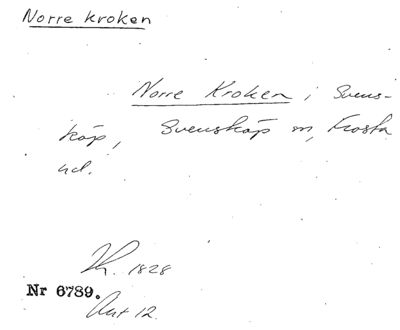 Norre kroken
Norre Kroken i Svens-
köp, Svensköp sn, Frosta
hd.
1828
Nr 6789.
Akt 12